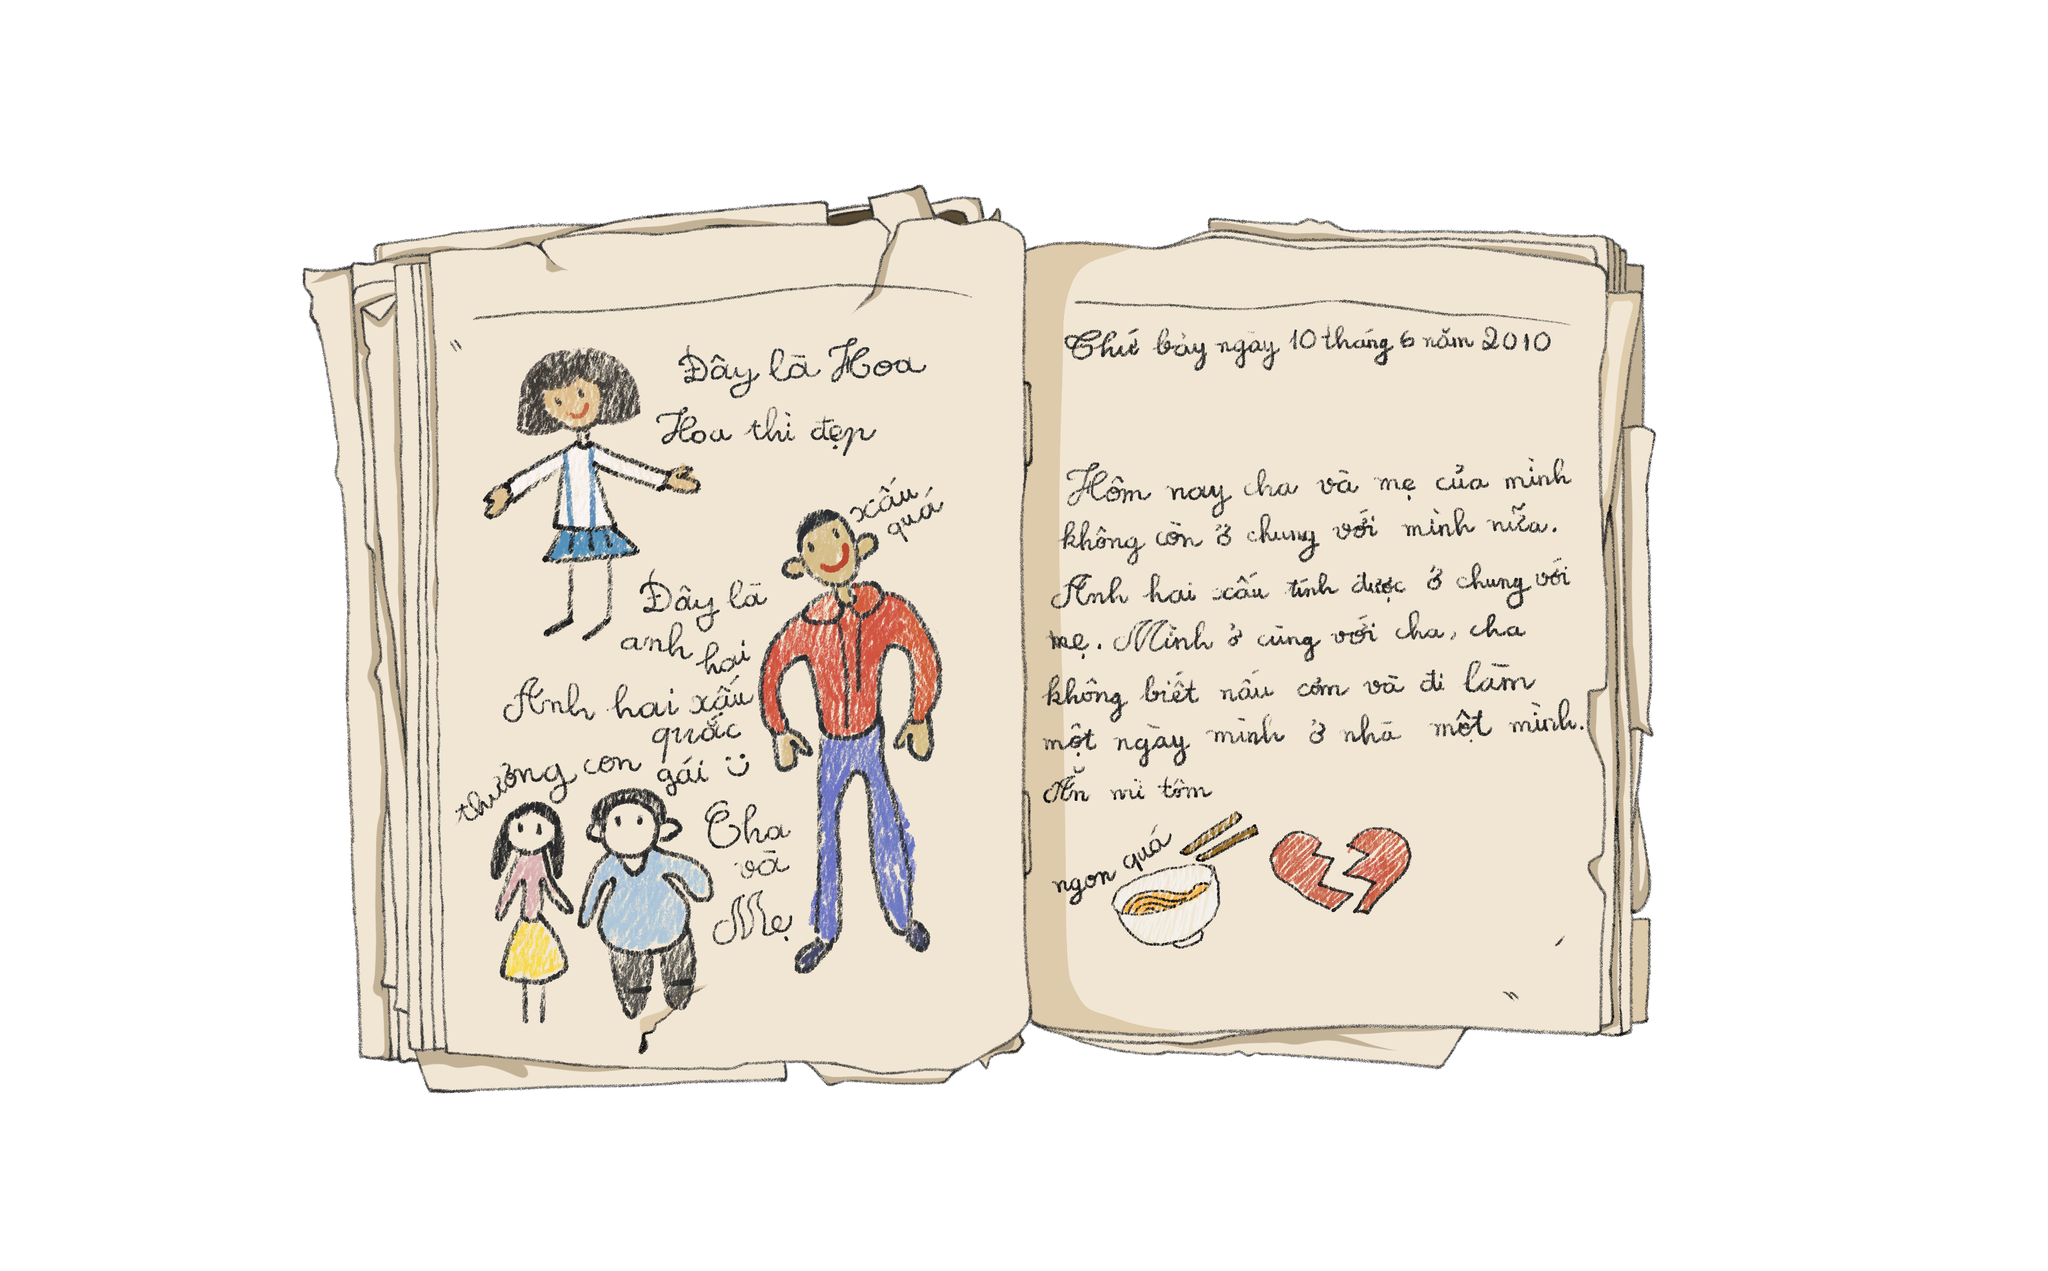 Đây là Hoa
Hoa thì đẹp
xấu
quá
Đây là
anh hai
Anh hai xấu
quắc
thương con gái
Cha
và
Mẹ
Thứ bảy ngày 10 tháng 6 năm 2010
Hôm nay cha và mẹ của mình
không còn ở chung với mình nữa.
Anh hai xấu tính được ở chung với
mẹ. Mình ở cùng với cha, cha
không biết nấu cơm và đi làm
một ngày mình ở nhà một mình.
Ăn mì tôm
ngon quá